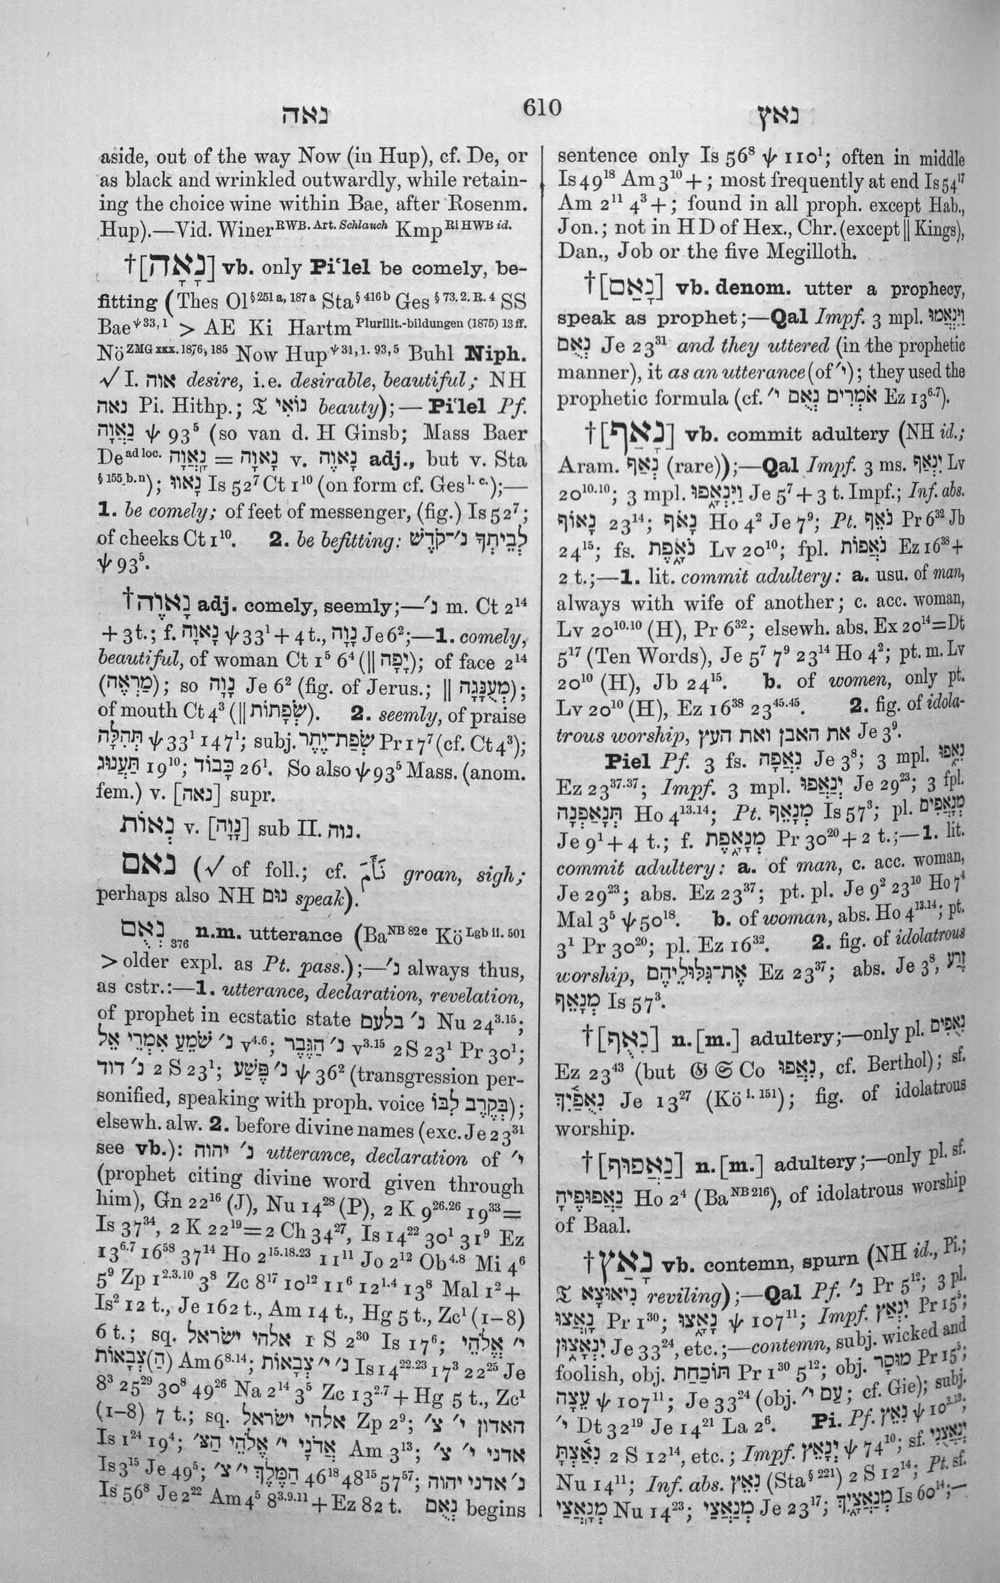 נאה
610
נאץ
aside, out of the way Now (in Hup), cf. De, or
as black and wrinkled outwardly, while retain-
ing the choice wine within Bae, after Rosenm.
Hup).—Vid. Winer RWB. Art. Schlauch Kmp RI HWB id.
†[נָאָה] vb. only Piʻlel be comely, be-
fitting (Thes Ol §251 a, 187 a Sta § 416 b Ges § 73. 2. R. 4 SS
Bae ψ 33, 1 > AE Ki Hartm Plurilit.-bildungen (1875) 13 ff.
Nö ZMG xxx. 1876, 185 Now Hup ψ 31, 1. 93, 5 Buhl Niph.
√ I. אוה desire, i.e. desirable, beautiful; NH
נאה Pi. Hithp.; 𝔗 נוֹאי beauty);—Piʻlel Pf.
נַאֲוָה ψ 93⁵ (so van d. H Ginsb; Mass Baer
De ad loc. נָאֲוָה = נָאוָה v. נָאוֶה adj., but v. Sta
§ 155, b. n); נָאווּ Is 52⁷ Ct 1¹⁰ (on form cf. Ges l. c.);—
1. be comely; of feet of messenger, (fig.) Is 52⁷;
of cheeks Ct 1¹⁰. 2. be befitting: לְבֵיתְךָ נ׳־קֹדֶשׁ
ψ 93⁵.
†נָאוֶה adj. comely, seemly;—נ׳ m. Ct 2¹⁴
+ 3 t.; f. נָאוָה ψ 33¹ + 4 t., נָוָה Je 6²;—1. comely,
beautiful, of woman Ct 1⁵ 6⁴ (|| יָפָה); of face 2¹⁴
(מַרְאֶה); so נָוָה Je 6² (fig. of Jerus.; || מְעֻנָּגָה);
of mouth Ct 4³ (|| שִׂפְתוֹת). 2. seemly, of praise
תְּהִלָּה ψ 33¹ 147¹; subj. שְׂפַת־יֶתֶר Pr 17⁷ (cf. Ct 4³);
תַּעֲנוּג 19¹⁰; כָּבוֹד 26¹. So also ψ 93⁵ Mass. (anom.
fem.) v. [נאה] supr.
נְאוֹת v. [נָוָה] sub II. נוה.
נאם (√ of foll.; cf. نَأَمَ groan, sigh;
perhaps also NH נוּם speak).
נְאֻם 376 n.m. utterance (Ba NB 82 e Kö Lgb ii. 501
> older expl. as Pt. pass.);—נ׳ always thus,
as cstr.:—1. utterance, declaration, revelation,
of prophet in ecstatic state נ׳ בלעם Nu 24³·¹⁵;
נ׳ הַגֶּבֶר v³·¹⁵ 2 S 23¹ Pr 30¹; נ׳ שֹׁמֵעַ אִמְרֵי אֵל v⁴·⁶;
נ׳ דוד 2 S 23¹; נ׳ פֶּשַׁע ψ 36² (transgression per-
sonified, speaking with proph. voice בְּקֶרֶב לִבּוֹ);
elsewh. alw. 2. before divine names (exc. Je 23³¹
see vb.): נ׳ יהוה utterance, declaration of י׳
(prophet citing divine word given through
him), Gn 22¹⁶ (J), Nu 14²⁸ (P), 2 K 9²⁶·²⁶ 19³³ =
Is 37³⁴, 2 K 22¹⁹ = 2 Ch 34²⁷, Is 14²² 30¹ 31⁹ Ez
13⁶·⁷ 16⁵⁸ 37¹⁴ Ho 2¹⁵·¹⁸·²³ 11¹¹ Jo 2¹² Ob⁴·⁸ Mi 4⁶
5⁹ Zp 1²·³·¹⁰ 3⁸ Zc 8¹⁷ 10¹² 11⁶ 12¹·⁴ 13⁸ Mal 1² +
Is² 12 t., Je 162 t., Am 14 t., Hg 5 t., Zc¹ (1–8)
6 t.; sq. אלהי ישראל 1 S 2³⁰ Is 17⁶; י׳ אֱלֹהֵי
(הַ)צְּבָאוֹת Am 6⁸·¹⁴; נ׳ י׳ צְבָאוֹת Is 14²²·²³ 17³ 22²⁵ Je
8³ 25²⁹ 30⁸ 49²⁶ Na 2¹⁴ 3⁵ Zc 13²·⁷ + Hg 5 t., Zc¹
(1–8) 7 t.; sq. י׳ צ׳ אלהי ישראל Zp 2⁹; האדון י׳ צ׳
Is 1²⁴ 19⁴; אֲדֹנָי י׳ אֱלֹהֵי הַצּ׳ Am 3¹³; אדני י׳ צ׳
Is 3¹⁵ Je 49⁵; הַמֶּלֶךְ י׳ צ׳ 46¹⁸ 48¹⁵ 57⁵⁷; נ׳ אדני יהוה
Is 56⁸ Je 2²² Am 4⁵ 8³·⁹·¹¹ + Ez 82 t. נְאֻם begins
sentence only Is 56⁸ ψ 110¹; often in middle
Is 49¹⁸ Am 3¹⁰ +; most frequently at end Is 54¹⁷
Am 2¹¹ 4³ +; found in all proph. except Hab.,
Jon.; not in H D of Hex., Chr. (except || Kings),
Dan., Job or the five Megilloth.
†[נָאַם] vb. denom. utter a prophecy,
speak as prophet;—Qal Impf. 3 mpl. וַיִּנְאֲמוּ
נְאֻם Je 23³¹ and they uttered (in the prophetic
manner), it as an utterance (of י׳); they used the
prophetic formula (cf. אֹמְרִים נְאֻם י׳ Ez 13⁶·⁷).
†[נָאַף] vb. commit adultery (NH id.;
Aram. נְאַף (rare));—Qal Impf. 3 ms. יִנְאַף Lv
20¹⁰·¹⁰; 3 mpl. וַיִּנְאָפוּ Je 5⁷ + 3 t. Impf.; Inf. abs.
נָאוֹף 23¹⁴; נָאֹף Ho 4² Je 7⁹; Pt. נֹאֵף Pr 6³² Jb
24¹⁵; fs. נֹאָפֶת Lv 20¹⁰; fpl. נֹאֲפוֹת Ez 16³⁸ +
2 t.;—1. lit. commit adultery: a. usu. of man,
always with wife of another; c. acc. woman,
Lv 20¹⁰·¹⁰ (H), Pr 6³²; elsewh. abs. Ex 20¹⁴ = Dt
5¹⁷ (Ten Words), Je 5⁷ 7⁹ 23¹⁴ Ho 4²; pt. m. Lv
20¹⁰ (H), Jb 24¹⁵. b. of women, only pt.
Lv 20¹⁰ (H), Ez 16³⁸ 23⁴⁵·⁴⁵. 2. fig. of idola-
trous worship, את האבן ואת העץ Je 3⁹.
Piel Pf. 3 fs. נִאֲפָה Je 3⁸; 3 mpl. נִאֵפוּ
Ez 23³⁷·³⁷; Impf. 3 mpl. יְנַאֲפוּ Je 29²³; 3 fpl.
תְּנָאַפְנָה Ho 4¹³·¹⁴; Pt. מְנָאֵף Is 57³; pl. מְנָאֲפִים
Je 9¹ + 4 t.; f. מְנָאָפֶת Pr 30²⁰ + 2 t.;—1. lit.
commit adultery: a. of man, c. acc. woman,
Je 29²³; abs. Ez 23³⁷; pt. pl. Je 9² 23¹⁰ Ho 7⁴
Mal 3⁵ ψ 50¹⁸. b. of woman, abs. Ho 4¹³·¹⁴; pt.
3¹ Pr 30²⁰; pl. Ez 16³². 2. fig. of idolatrous
worship, אֶת־גִּלּוּלֵיהֶם Ez 23³⁷; abs. Je 3⁸, זֶרַע
מְנָאֵף Is 57³.
†[נִאֻף] n.[m.] adultery;—only pl. נִאֻפִים
Ez 23⁴³ (but 𝔊 𝔖 Co נִאֲפוּ, cf. Berthol); sf.
נִאֻפַיִךְ Je 13²⁷ (Kö i. 151); fig. of idolatrous
worship.
†[נַאֲפוּף] n.[m.] adultery;—only pl. sf.
נַאֲפוּפֶיהָ Ho 2⁴ (Ba NB 216), of idolatrous worship
of Baal.
†נָאַץ vb. contemn, spurn (NH id., Pi.;
𝔗 נִיאוּצָא reviling);—Qal Pf. נ׳ Pr 5¹²; 3 pl.
נָאֲצוּ Pr 1³⁰; נָאָצוּ ψ 107¹¹; Impf. יִנְאַץ Pr 15⁵;
יִנְאָצוּן Je 33²⁴, etc.;—contemn, subj. wicked and
foolish, obj. תּוֹכַחַת Pr 1³⁰ 5¹²; obj. מוּסָר Pr 15⁵;
עֵצָה ψ 107¹¹; Je 33²⁴ (obj. עַם י׳; cf. Gie); subj.
י׳ Dt 32¹⁹ Je 14²¹ La 2⁶. Pi. Pf. נִאֵץ ψ 10³·¹³;
נִאַצְתָּ 2 S 12¹⁴, etc.; Impf. יְנָאֵץ ψ 74¹⁰; sf. יְנַאֲצֻנִי
Nu 14¹¹; Inf. abs. נִאֵץ (Sta § 221) 2 S 12¹⁴; Pt. sf.
מְנַאֲצַי Nu 14²³; מְנַאֲצַי Je 23¹⁷; מְנַאֲצָיִךְ Is 60¹⁴;—